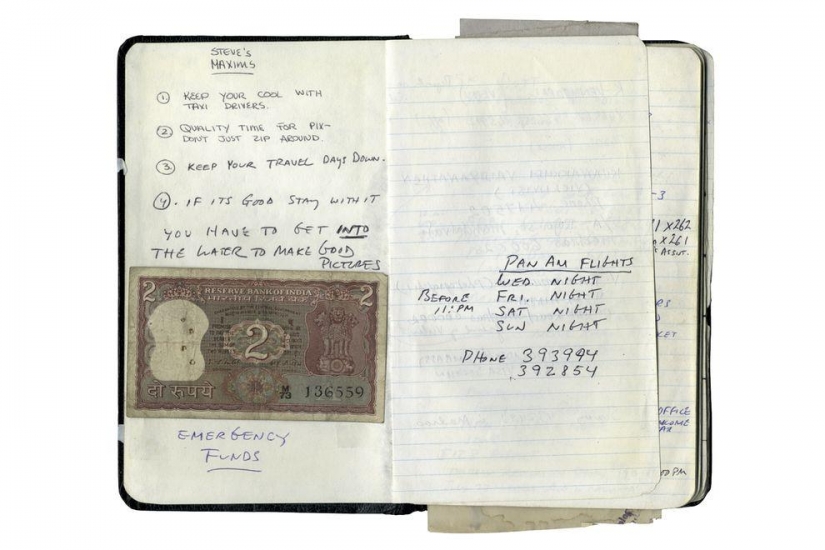 STEVE'S
MAXIMS
1. KEEP YOUR COOL WITH
TAXI DRIVERS.
2 QUALITY TIME FOR PIX-
DON'T JUST ZIP AROUND.
3. KEEP YOUR TRAVEL DAYS DOWN.
4. IF ITS GOOD STAY WITH IT
YOU HAVE TO GET INTO
THE WATER TO MAKE GOOD
PICTURES
2 RESERVE BANK OF INDIA 2
2
दो रुपये
M/73 136559
EMERGENCY
FUNDS
PAN AM FLIGHTS
WED. NIGHT
BEFORE
11:PM
FRI. NIGHT
SAT NIGHT
SUN NIGHT
PHONE 393994
392854
-3
1 X262
X261
OFFICE
PM